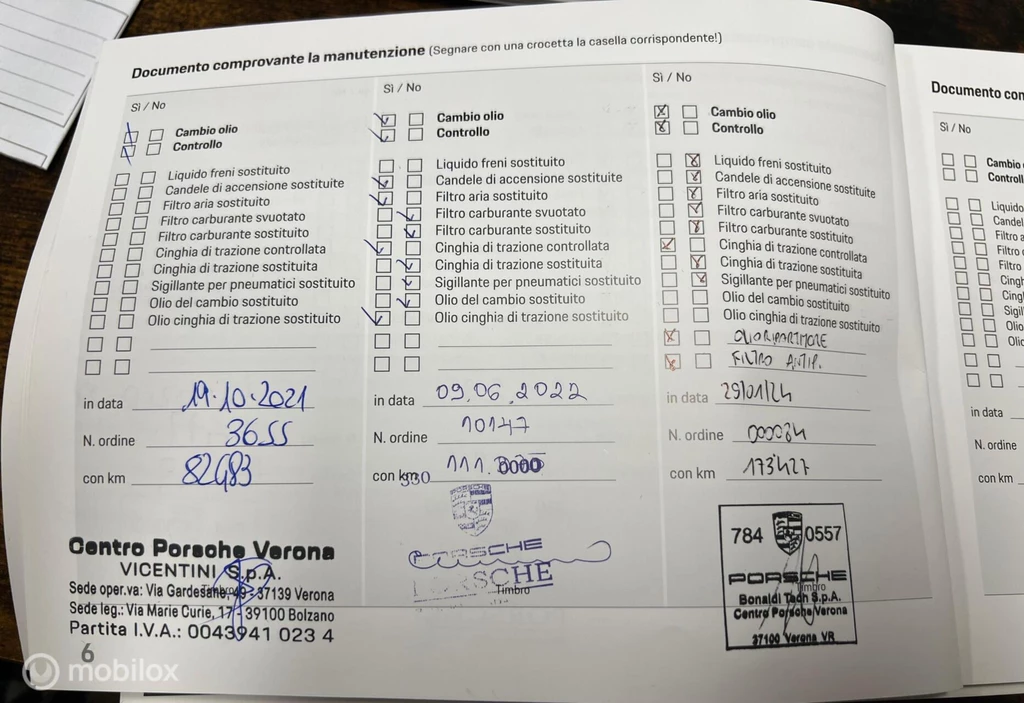 Documento comprovante la manutenzione (Segnare con una crocetta la casella corrispondente!)
Sì / No
Cambio olio
Controllo
Liquido freni sostituito
Candele di accensione sostituite
Filtro aria sostituito
Filtro carburante svuotato
Filtro carburante sostituito
Cinghia di trazione controllata
Cinghia di trazione sostituita
Sigillante per pneumatici sostituito
Olio del cambio sostituito
Olio cinghia di trazione sostituito
in data 19.10.2021
N. ordine 3655
con km 82483
Centro Porsche Verona
VICENTINI S.p.A.
Timbro
Sede oper.va: Via Gardesane, 49 - 37139 Verona
Sede leg.: Via Marie Curie, 17 - 39100 Bolzano
Partita I.V.A.: 0043941 023 4
6
Sì / No
Cambio olio
Controllo
Liquido freni sostituito
Candele di accensione sostituite
Filtro aria sostituito
Filtro carburante svuotato
Filtro carburante sostituito
Cinghia di trazione controllata
Cinghia di trazione sostituita
Sigillante per pneumatici sostituito
Olio del cambio sostituito
Olio cinghia di trazione sostituito
in data 09.06.2022
N. ordine 10147
con km 111.
330
PORSCHE
PORSCHE
Timbro
Sì / No
Cambio olio
Controllo
Liquido freni sostituito
Candele di accensione sostituite
Filtro aria sostituito
Filtro carburante svuotato
Filtro carburante sostituito
Cinghia di trazione controllata
Cinghia di trazione sostituita
Sigillante per pneumatici sostituito
Olio del cambio sostituito
Olio cinghia di trazione sostituito
OLIO RIPARTITORE
FILTRO ANTIP.
in data 29/01/24
N. ordine 000084
con km 173'427
784 0557
PORSCHE
Timbro
Bonaldi Tech S.p.A.
Centro Porsche Verona
37100 Verona VR
Documento con
Sì / No
Cambio
Control
Liquido
Candel
Filtro a
Filtro
Filtro
Cingh
Cing
Sigil
Olio
Olio
in data
N. ordine
con km
mobilox